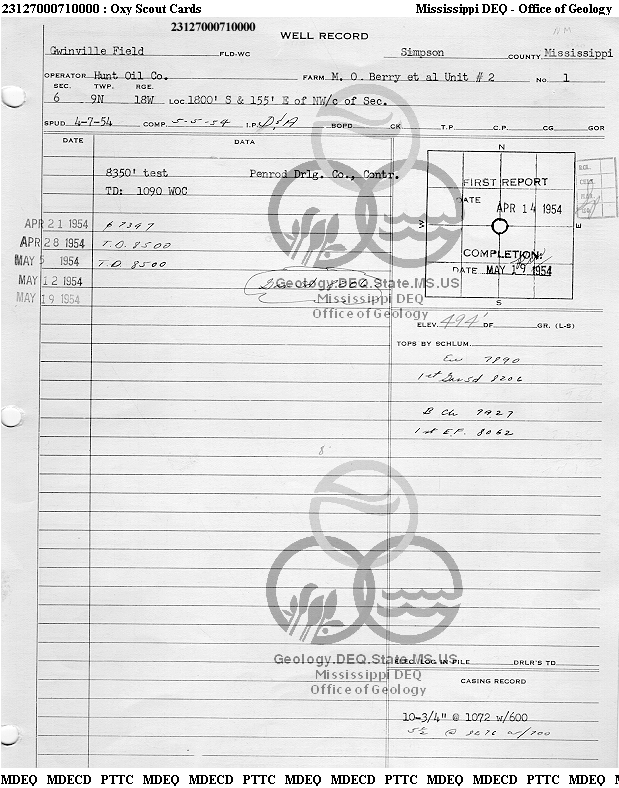 23127000710000 : Oxy Scout Cards Mississippi DEQ - Office of Geology
23127000710000
WELL RECORD
Gwinville Field FLD-WC Simpson COUNTY Mississippi
OPERATOR Hunt Oil Co. FARM M. O. Berry et al Unit # 2 NO. 1
SEC. TWP. RGE.
6 9N 18W LOC 1800' S & 155' E of NW/c of Sec.
SPUD 4-7-54 COMP. 5-5-54 I.P. D&A BOPD CK T.P C.P. CG GOR
DATE DATA
8350' test Penrod Drlg. Co., Contr.
TD: 1090 WOC
N
W
E
S
FIRST REPORT
DATE APR 14 1954
COMPLETION:
DATE MAY 19 1954
APR 21 1954 7347
APR 28 1954 T.D. 8500
MAY 5 1954 T.D. 8500
MAY 12 1954
MAY 19 1954
Geology.DEQ.State.MS.US
Mississippi DEQ
Office of Geology
ELEV. 494' DF GR. (L-S)
TOPS BY SCHLUM.
Eu 7890
1st 8206
B Ch 7927
1st E.F. 8062
Geology.DEQ.State.MS.US
Mississippi DEQ
Office of Geology
ELEC. LOG IN FILE DRLR'S TD
CASING RECORD
10-3/4" @ 1072 w/600
5½ @ 8676 w/700
MDEQ MDECD PTTC MDEQ MDECD PTTC MDEQ MDECD PTTC MDEQ MDECD PTTC MDEQ M